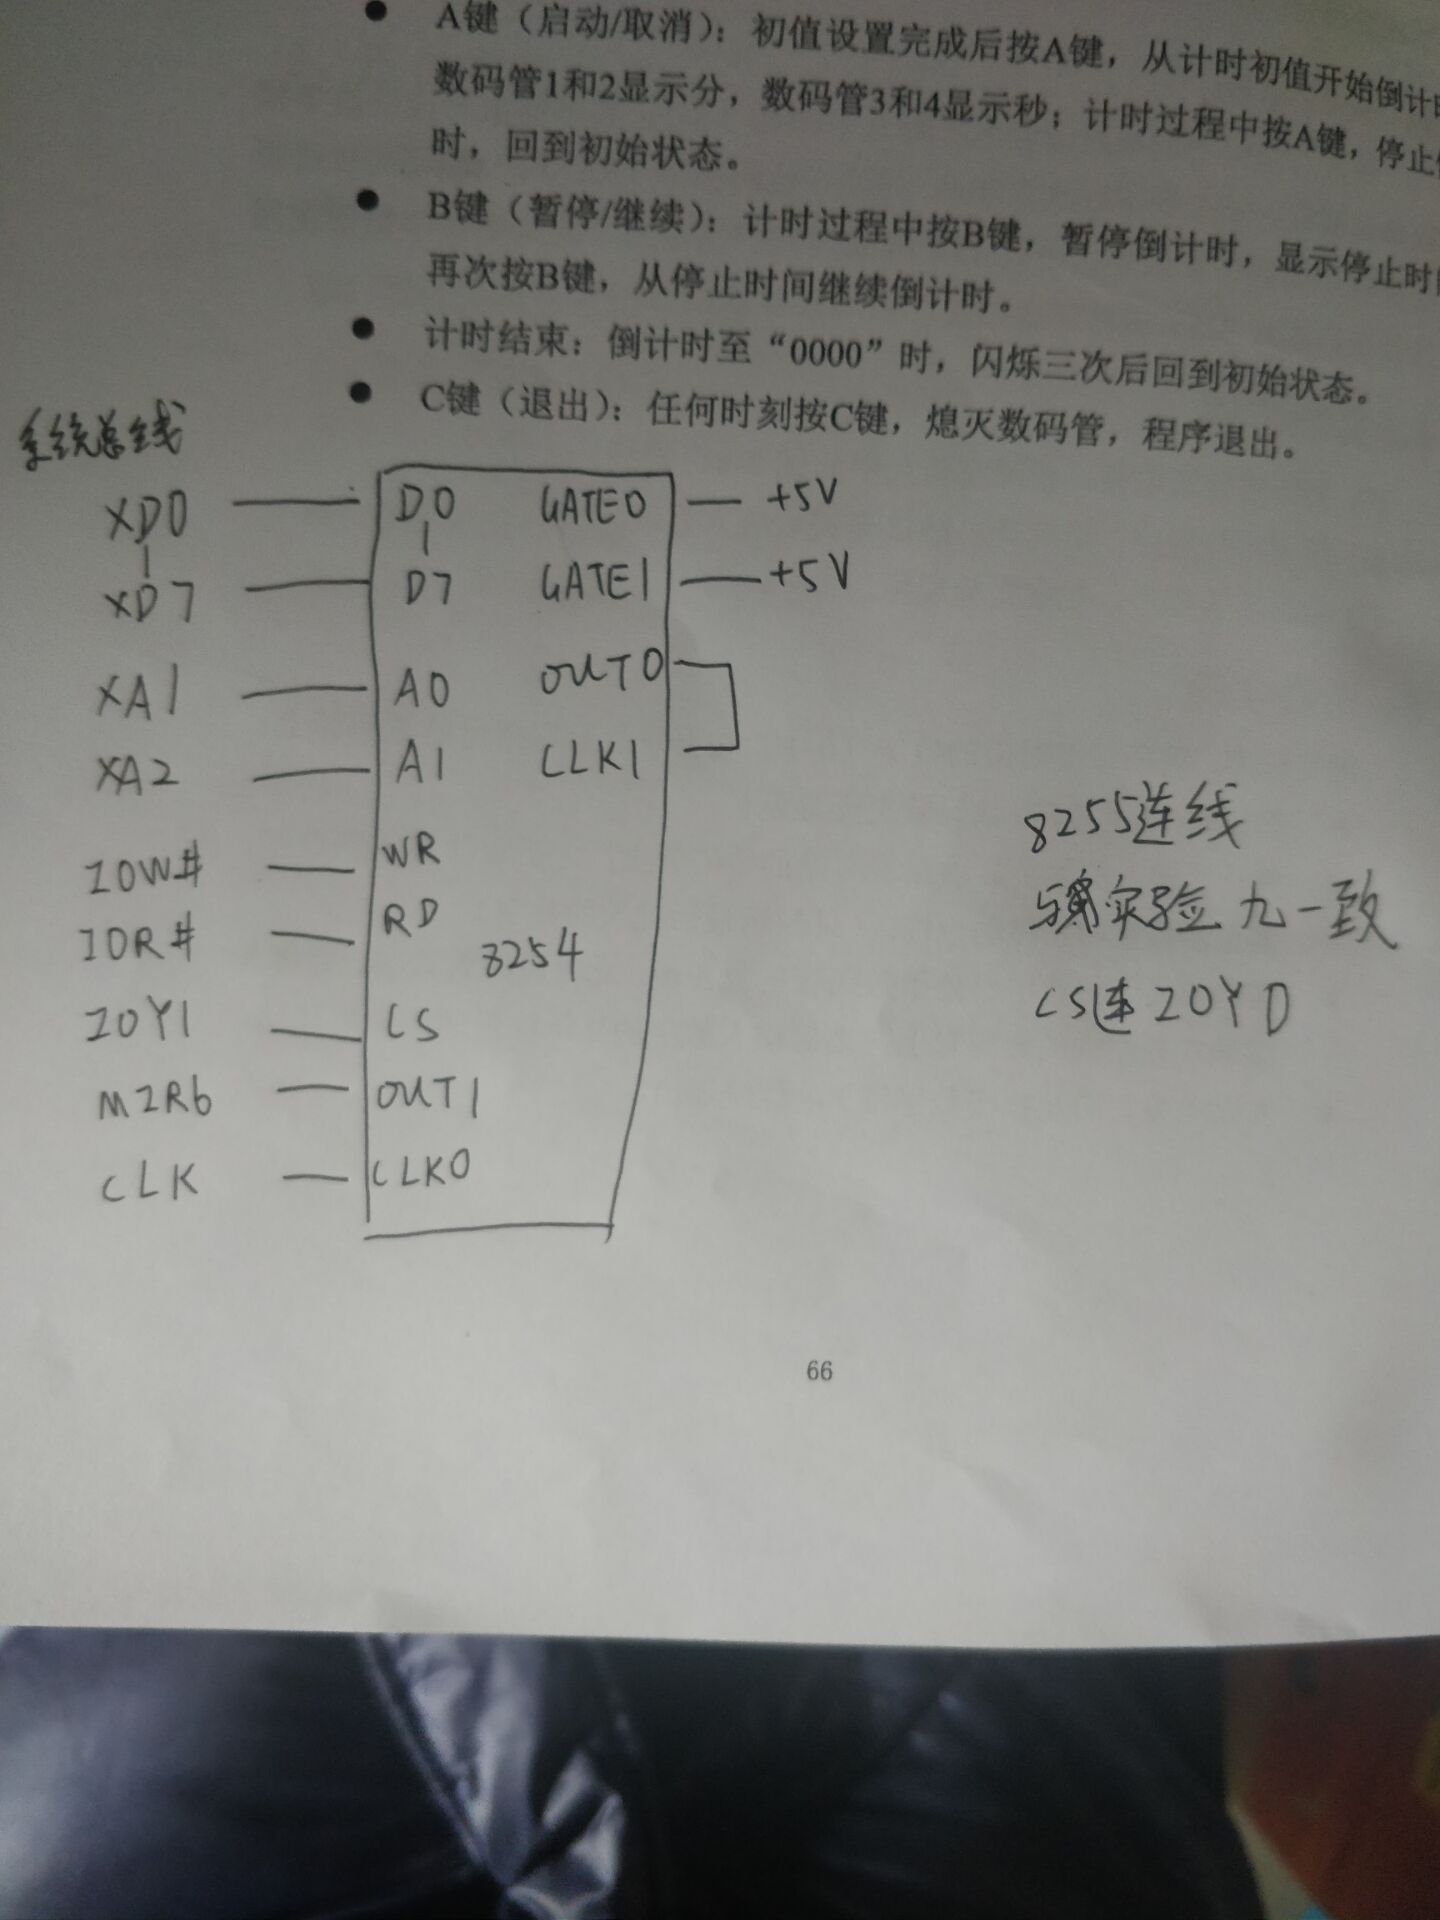 ● A键（启动/取消）：初值设置完成后按A键，从计时初值开始倒计
数码管1和2显示分，数码管3和4显示秒；计时过程中按A键，停止
时，回到初始状态。
● B键（暂停/继续）：计时过程中按B键，暂停倒计时，显示停止时
再次按B键，从停止时间继续倒计时。
● 计时结束：倒计时至“0000”时，闪烁三次后回到初始状态。
● C键（退出）：任何时刻按C键，熄灭数码管，程序退出。
系统总线
XD0 D0 GATE0 +5V
XD7 D7 GATE1 +5V
XA1 A0 OUT0
XA2 A1 CLK1
IOW# WR
IOR# RD
8254
IOY1 CS
MIR6 OUT1
CLK CLK0
8255连线
与实验九一致
CS连IOY0
66